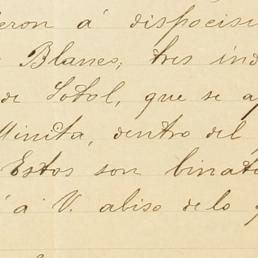 eron á dispocisi
Blanes, tres ind
de Sotol, que se a
Minita, dentro del
Estos son binat
á V. abiso de lo